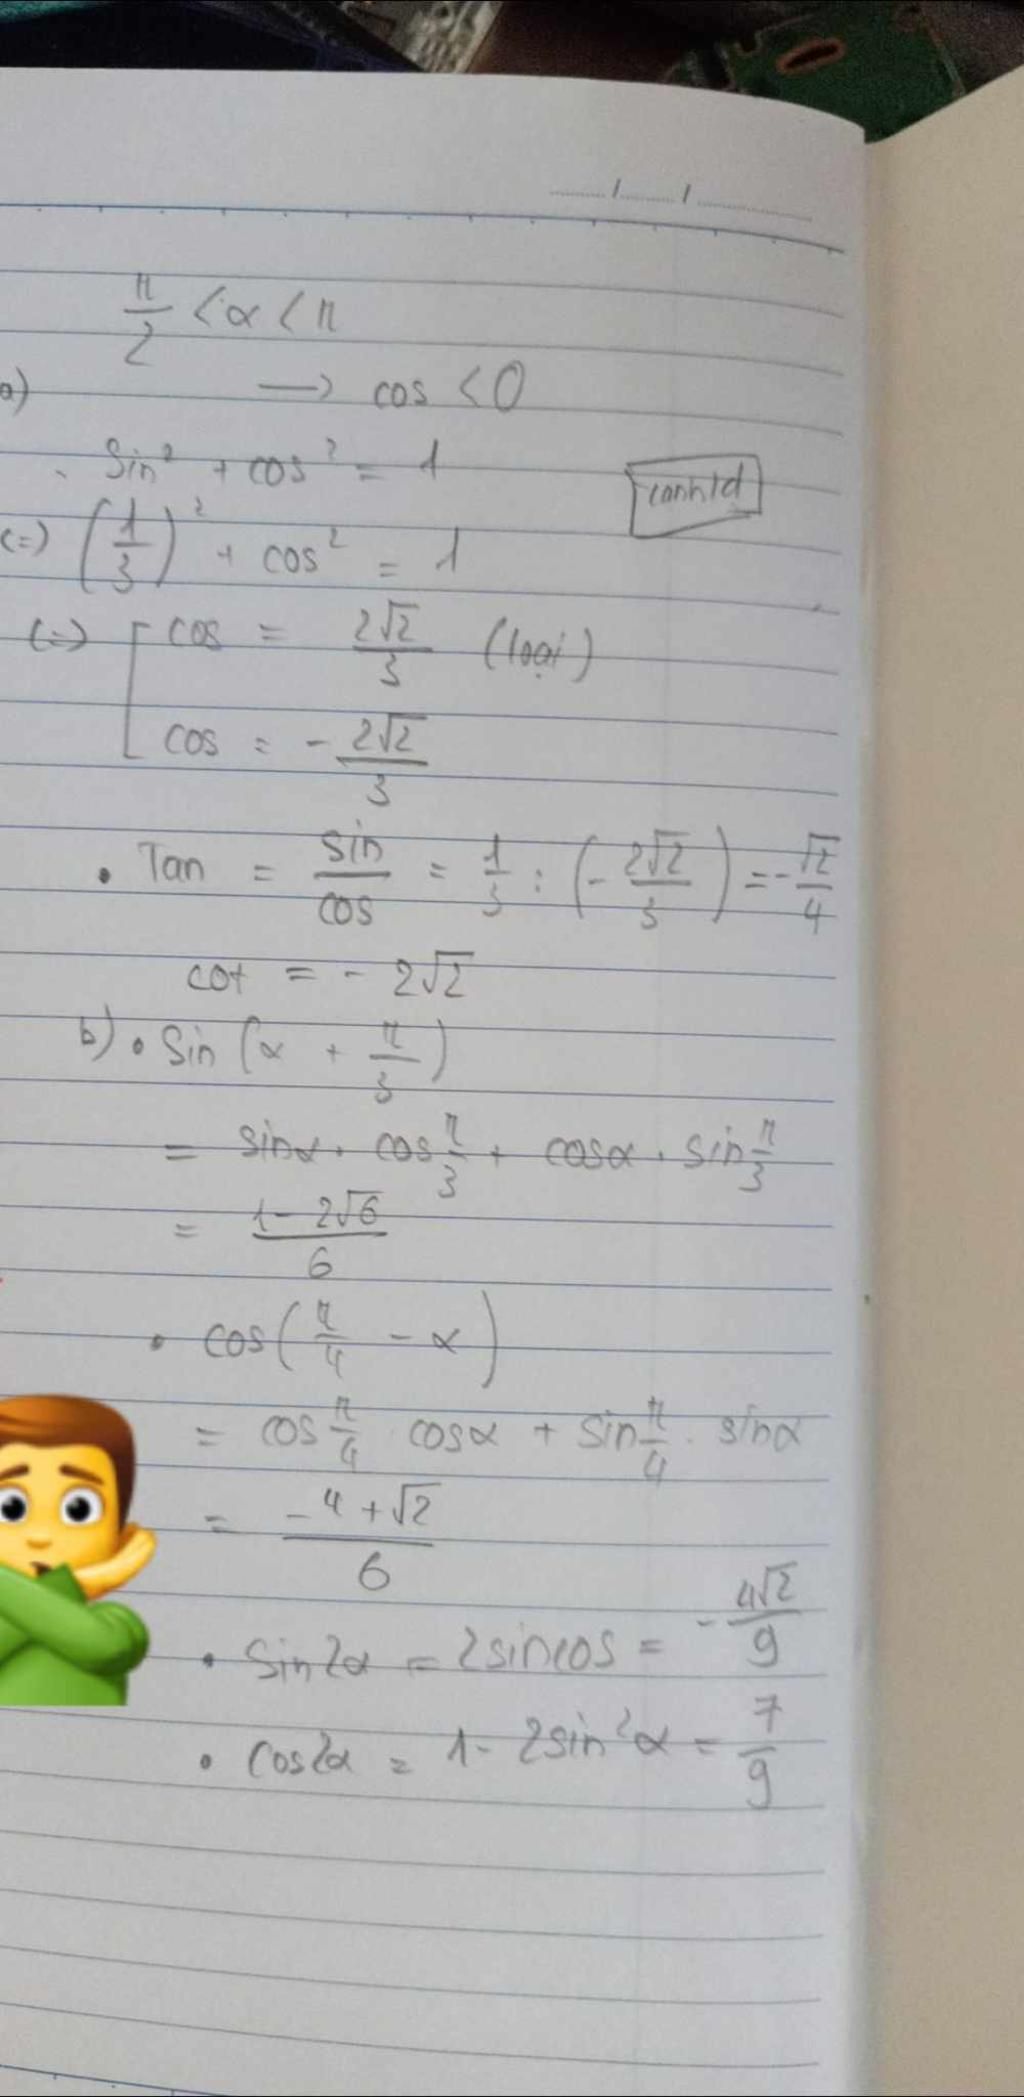 ...../...../.....
π/2 < α < π
a) → cos < 0
Sin² + cos² = 1
(=) (1/3)² + cos² = 1
(=) [ cos = 2√2/3 (loại)
cos = - 2√2/3
• Tan = sin/cos = 1/3 : (- 2√2/3) = - √2/4
cot = - 2√2
b) • Sin (α + π/3)
= sinα . cos π/3 + cosα . sin π/3
= (1 - 2√6)/6
• cos (π/4 - α)
= cos π/4 . cosα + sin π/4 . sinα
= (-4 + √2)/6
• Sin2α = 2sincos = - 4√2/9
• Cos2α = 1 - 2sin²α = 7/9